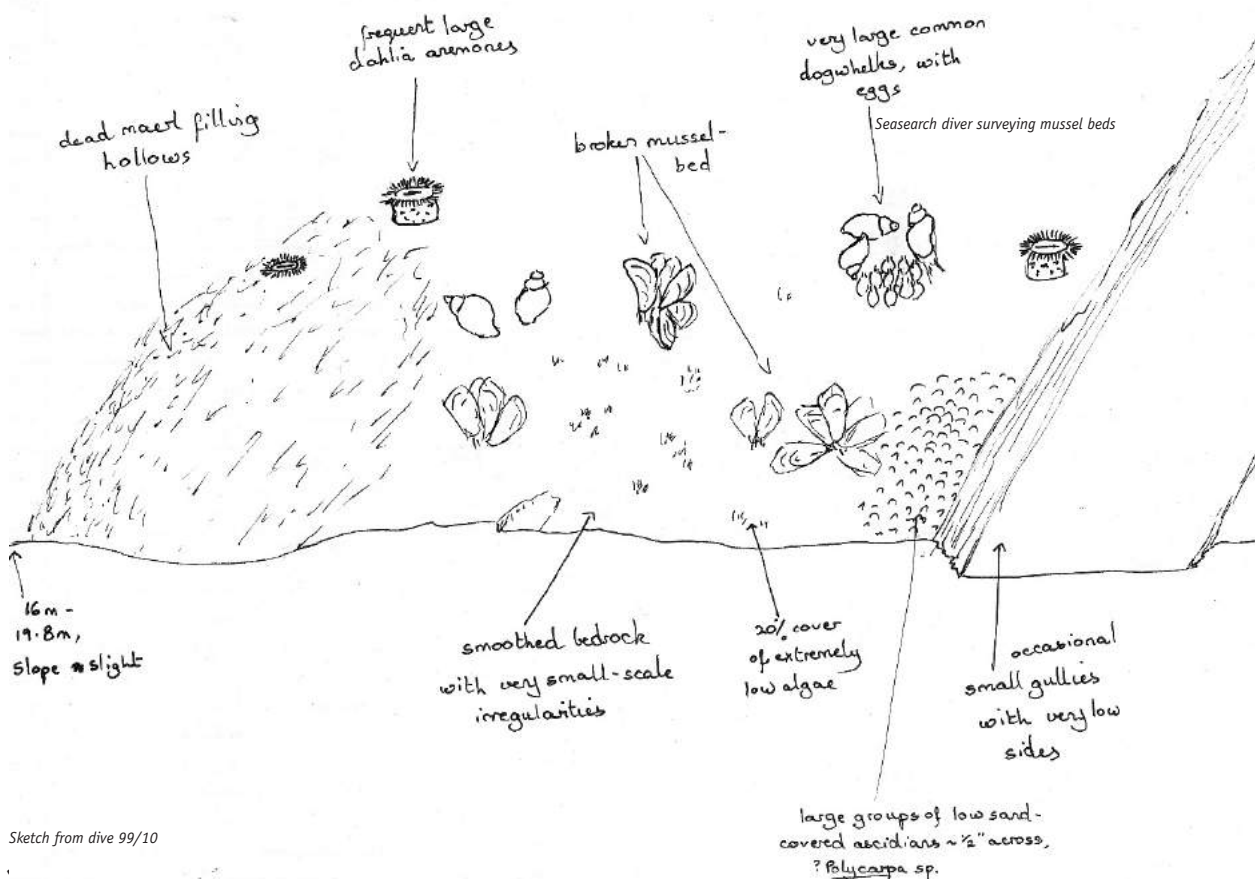 frequent large
dahlia anemones
very large common
dogwhelks, with
eggs
Seasearch diver surveying mussel beds
dead maerl filling
hollows
broken mussel-
bed
16m -
19.8m,
slope slight
smoothed bedrock
with very small-scale
irregularities
20% cover
of extremely
low algae
occasional
small gullies
with very low
sides
large groups of low sand-
covered ascidians ~ ½" across,
? Polycarpa sp.
Sketch from dive 99/10